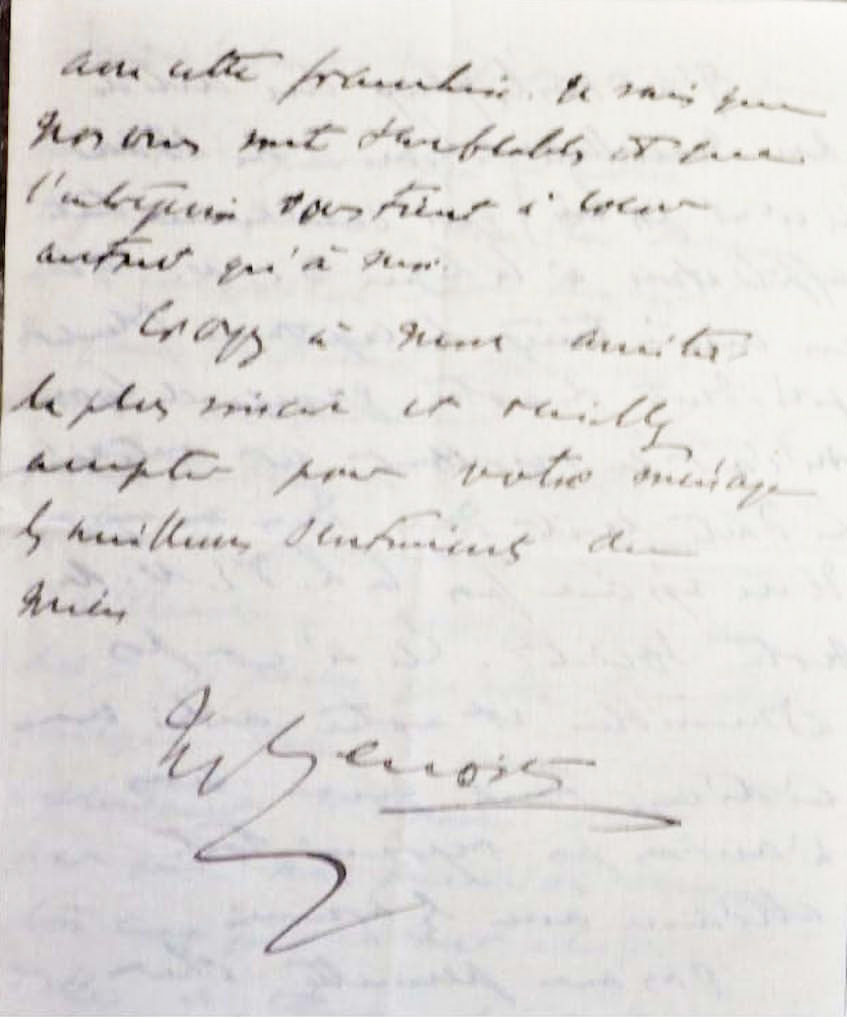 avec cette franchise. Je sais que
nos vues sont semblables et que
l'entreprise vous tient à coeur
autant qu'à moi.
Croyez à mon amitié
la plus sincère et veuillez
accepter pour votre ménage
les meilleurs sentiments du
mien
Benoist